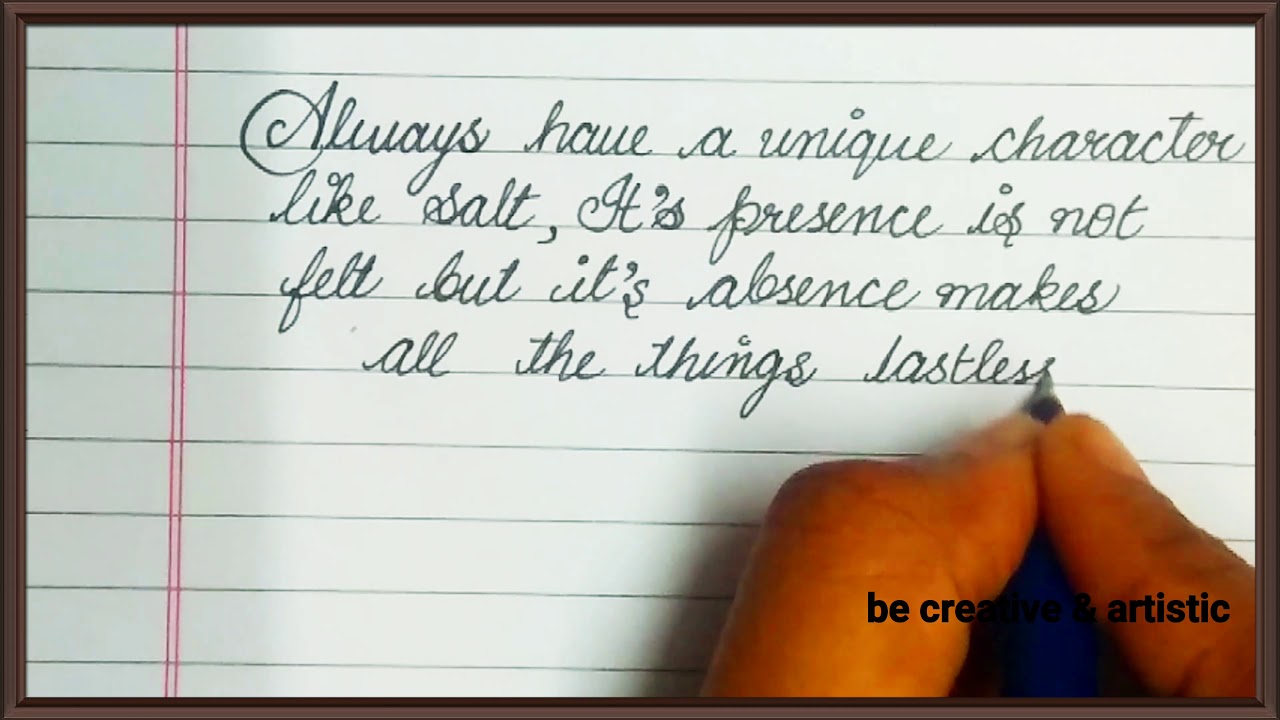 Always have a unique character
like salt, It's presence is not
felt but it's absence makes
all the things tastless
be creative & artistic